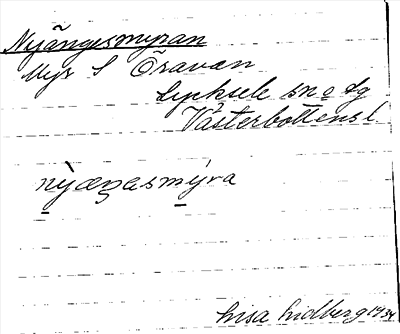 Nyängesmyran
Myr S Öravan
Lycksele sn o lg
Västerbottens l
nỳæŋ̩asmýra
Lisa Lidberg 1934